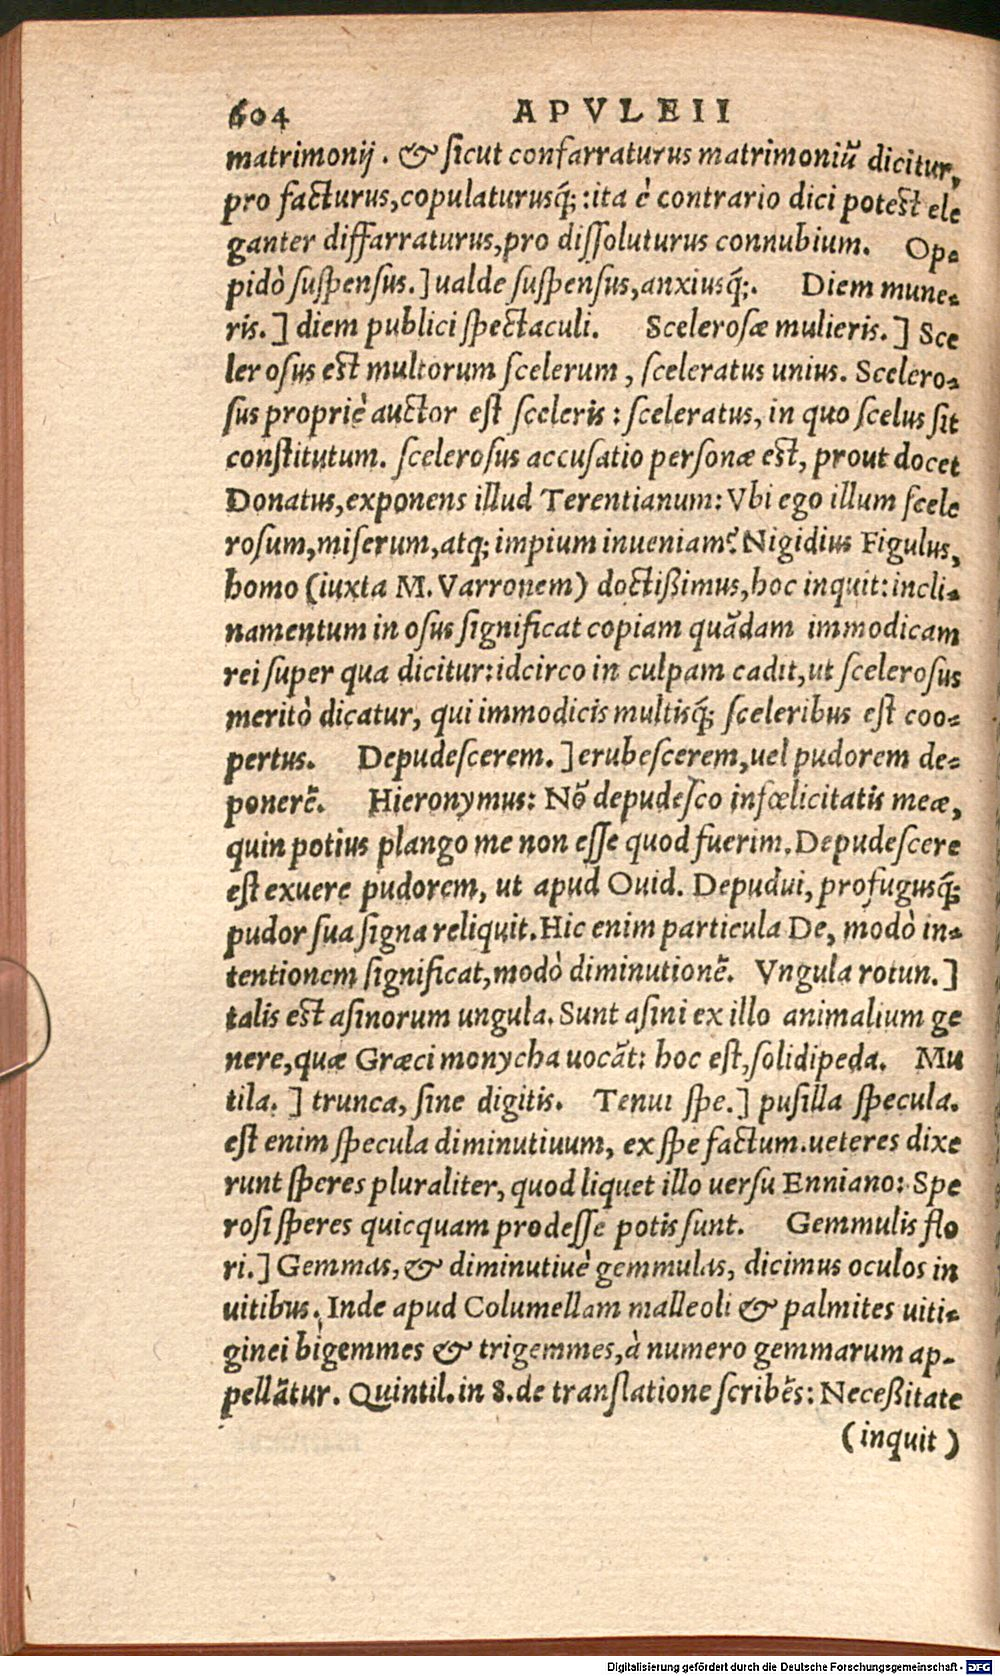 604 APVLEII
matrimonij. & sicut confarraturus matrimoniū dicitur,
pro facturus, copulaturusq́;: ita è contrario dici potest ele
ganter diffarraturus, pro dissoluturus connubium. Op-
pidò suspensus.] ualde suspensus, anxiusq́;. Diem mune-
ris.] diem publici spectaculi. Scelerosæ mulieris.] Sce
lerosus est multorum scelerum, sceleratus unius. Scelero-
sus propriè auctor est sceleris: sceleratus, in quo scelus sit
constitutum. scelerosus accusatio personæ est, prout docet
Donatus, exponens illud Terentianum: Vbi ego illum scele
rosum, miserum, atq; impium inueniam? Nigidius Figulus,
homo (iuxta M. Varronem) doctißimus, hoc inquit: incli-
namentum in osus significat copiam quādam immodicam
rei super qua dicitur: idcirco in culpam cadit, ut scelerosus
meritò dicatur, qui immodicis multisq́; sceleribus est coo-
pertus. Depudescerem.] erubescerem, uel pudorem de-
ponerē. Hieronymus: Nō depudesco infœlicitatis meæ,
quin potius plango me non esse quod fuerim. Depudescere
est exuere pudorem, ut apud Ouid. Depudui, profugusq́;
pudor sua signa reliquit. Hic enim particula De, modò in-
tentionem significat, modò diminutionē. Vngula rotun.]
talis est asinorum ungula. Sunt asini ex illo animalium ge
nere, quæ Græci monycha uocāt: hoc est, solidipeda. Mu
tila.] trunca, sine digitis. Tenui spe.] pusilla specula.
est enim specula diminutiuum, ex spe factum. ueteres dixe
runt speres pluraliter, quod liquet illo uersu Enniano: Spe
rosi speres quicquam prodesse potis sunt. Gemmulis flo
ri.] Gemmas, & diminutiuè gemmulas, dicimus oculos in
uitibus. Inde apud Columellam malleoli & palmites uiti-
ginei bigemmes & trigemmes, à numero gemmarum ap-
pellātur. Quintil. in 8. de translatione scribēs: Neceßitate
(inquit)
Digitalisierung gefördert durch die Deutsche Forschungsgemeinschaft - DFG